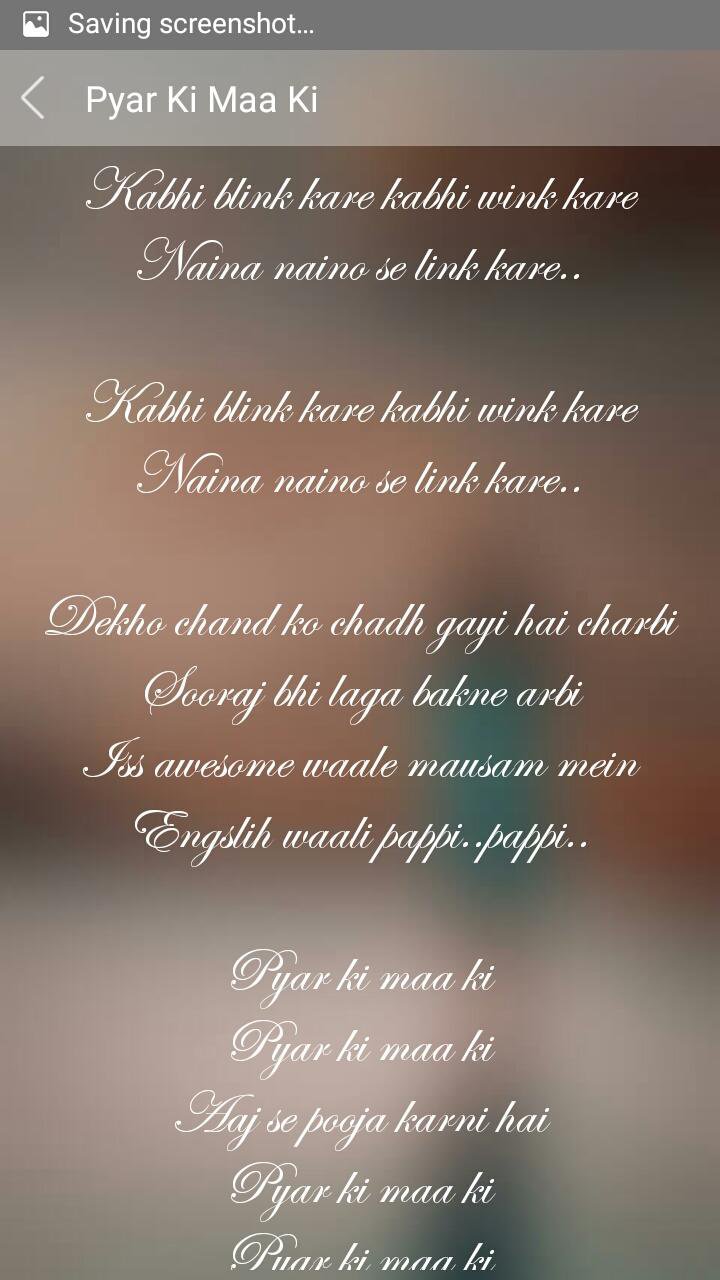 Saving screenshot...
Pyar Ki Maa Ki
Kabhi blink kare kabhi wink kare
Naina naino se link kare..
Kabhi blink kare kabhi wink kare
Naina naino se link kare..
Dekho chand ko chadh gayi hai charbi
Sooraj bhi laga bakne arbi
Iss awesome waale mausam mein
Engslih waali pappi..pappi..
Pyar ki maa ki
Pyar ki maa ki
Aaj se pooja karni hai
Pyar ki maa ki
Pyar ki maa ki